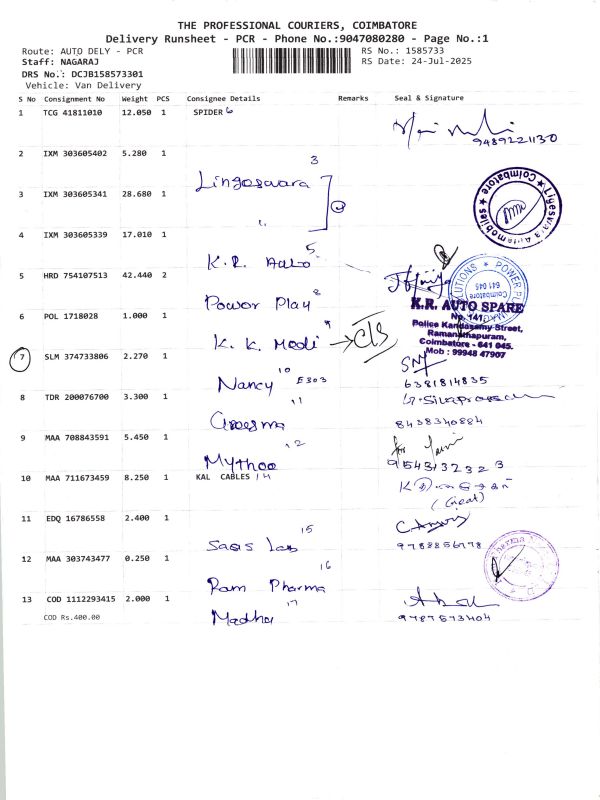 THE PROFESSIONAL COURIERS, COIMBATORE
Delivery Runsheet - PCR - Phone No.:9047080280 - Page No.:1
Route: AUTO DELY - PCR RS No.: 1585733
Staff: NAGARAJ RS Date: 24-Jul-2025
DRS No.: DCJB158573301
Vehicle: Van Delivery
S No Consignment No Weight PCS Consignee Details Remarks Seal & Signature
1 TCG 41811010 12.050 1 SPIDER 6
9489221130
2 IXM 303605402 5.280 1
3
Lingeswara
3 IXM 303605341 28.680 1
4 IXM 303605339 17.010 1
5
K.R. Auto
5 HRD 754107513 42.440 2
Power Play 8
K.R. AUTO SPARE
No. 141,
Police Kandasamy Street,
Ramanathapuram,
Coimbatore - 641 045.
Mob : 99948 47907
6 POL 1718028 1.000 1
K. K. Modi 9 → CLS
7 SLM 374733806 2.270 1
10
Nancy E303
6381814835
8 TDR 200076700 3.300 1
11
8438340884
9 MAA 708843591 5.450 1
12
Mythoo
9543132323
10 MAA 711673459 8.250 1 KAL CABLES 14
11 EDQ 16786558 2.400 1
15
9788856778
12 MAA 303743477 0.250 1
16
Ram Pharma
13 COD 1112293415 2.000 1
17
Madhu
9787573404
COD Rs.400.00